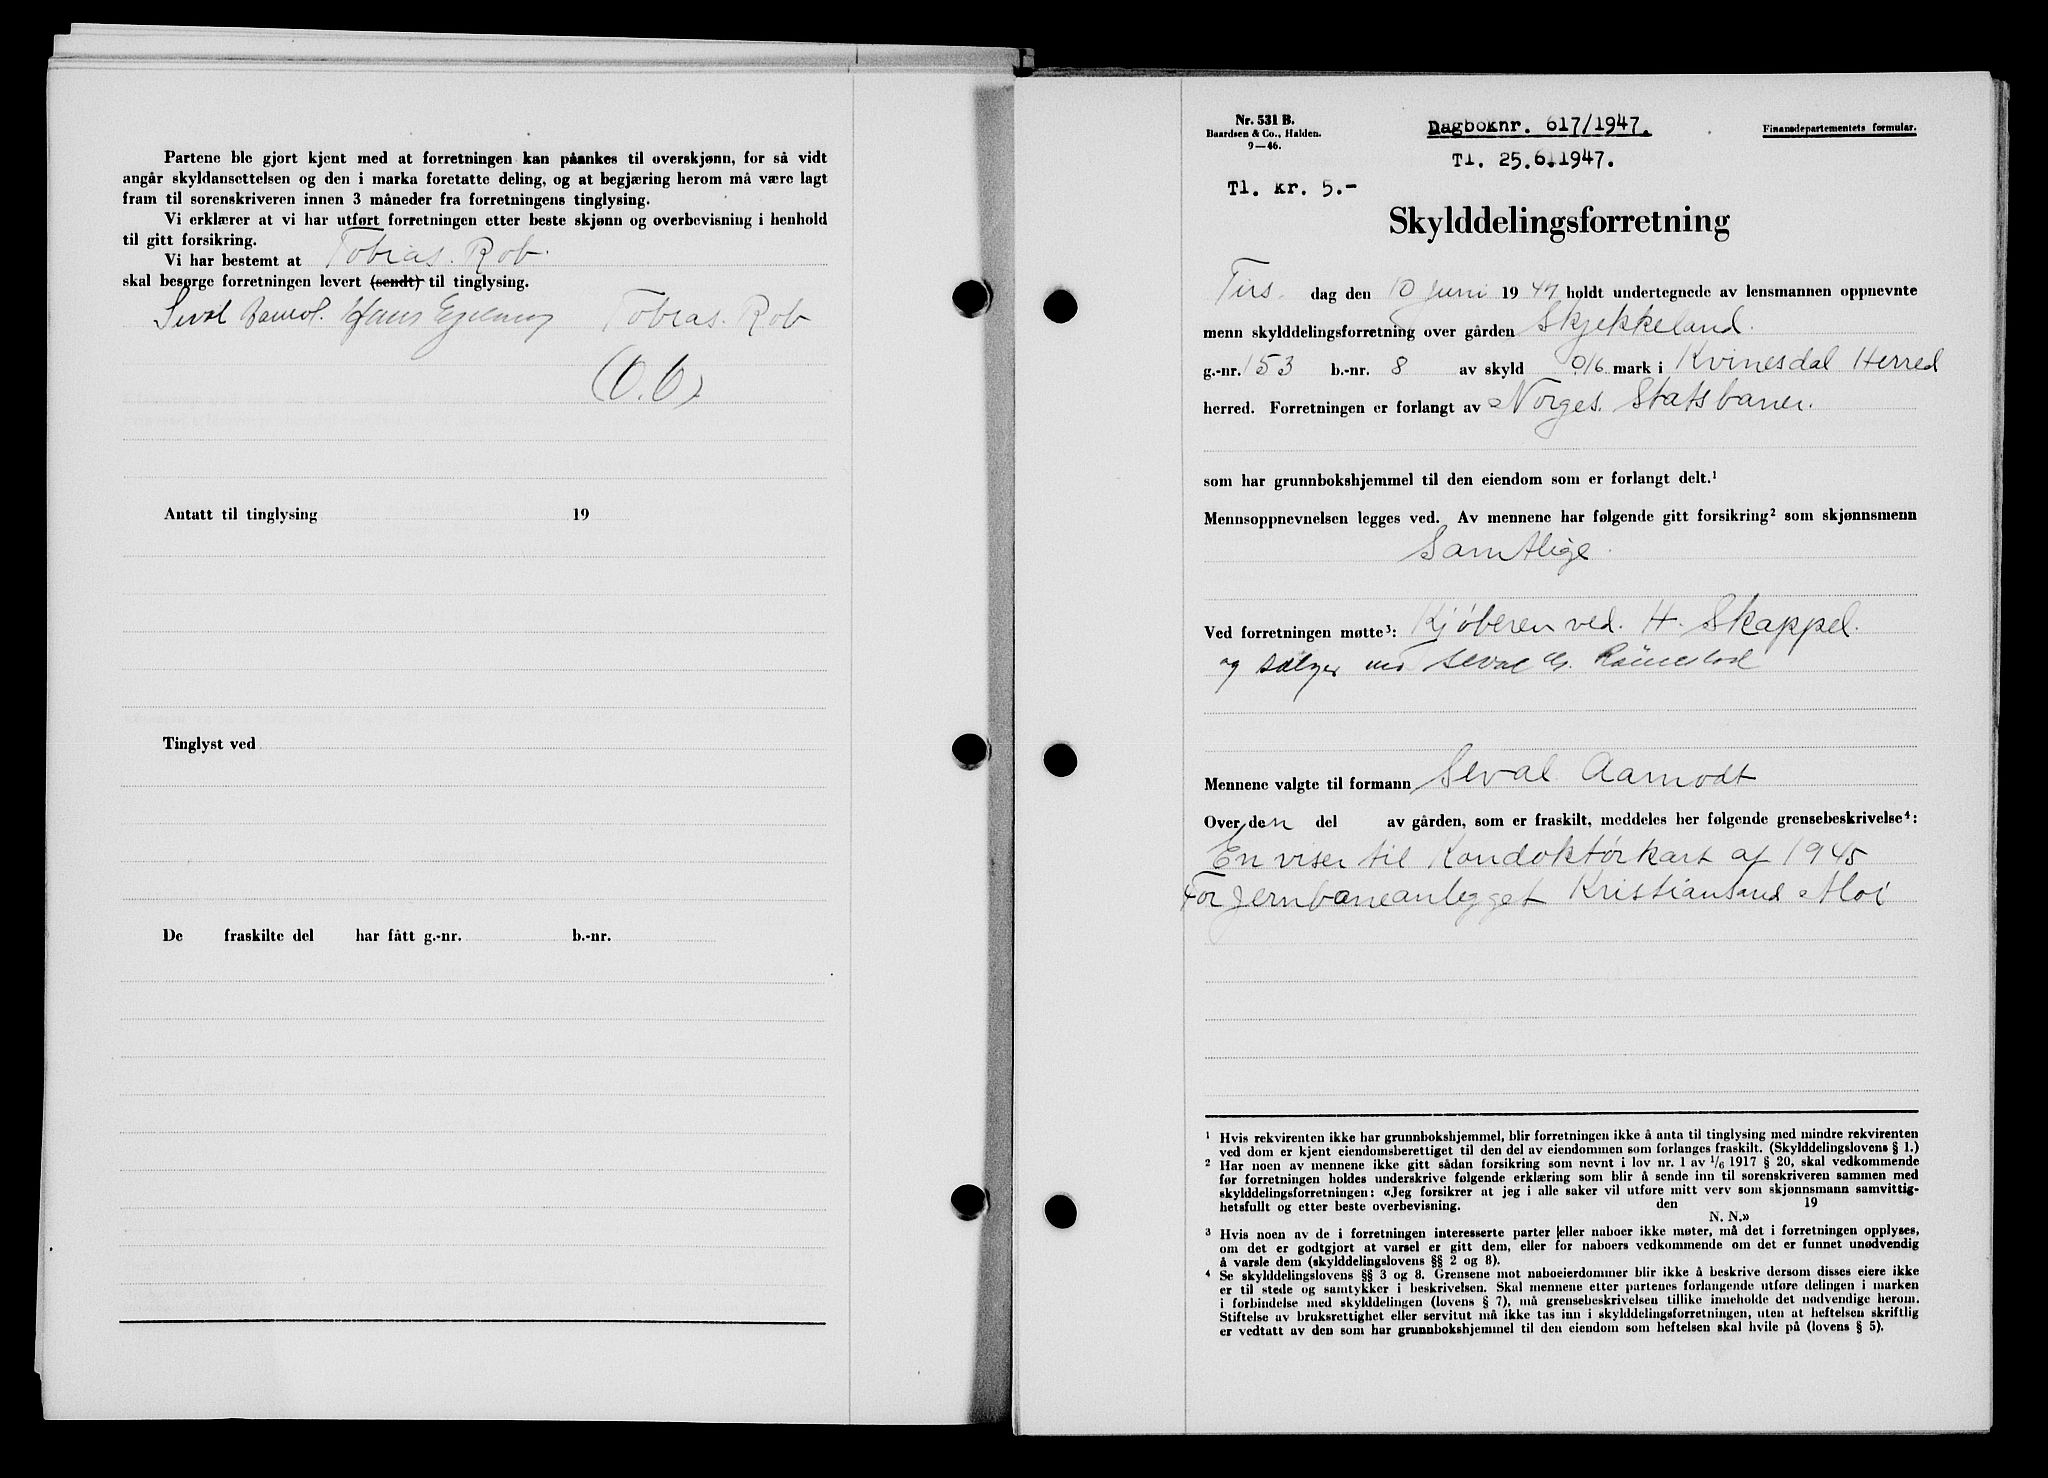 Partene ble gjort kjent med at forretningen kan påankes til overskjønn, for så vidt
angår skyldansettelsen og den i marka foretatte deling, og at begjæring herom må være lagt
fram til sorenskriveren innen 3 måneder fra forretningens tinglysing.
Vi erklærer at vi har utført forretningen etter beste skjønn og overbevisning i henhold
til gitt forsikring.
Vi har bestemt at Tobias. Rob.
skal besørge forretningen levert (sendt) til tinglysing.
Seval Hans Tobias. Rob
Antatt til tinglysing 19
Tinglyst ved
De fraskilte del har fått g.-nr. b.-nr.
Nr. 531 B.
Baardsen & Co., Halden.
9—46.
Dagboknr. 617/1947.
Tl. 25.6.1947.
Finansdepartementets formular.
Tl. kr. 5.-
Skylddelingsforretning
Tirs. dag den 10 juni 1947 holdt undertegnede av lensmannen oppnevnte
menn skylddelingsforretning over gården Skjekkeland.
g.-nr. 153 b.-nr. 8 av skyld 0,16 mark i Kvinesdal Herred
herred. Forretningen er forlangt av Norges. Statsbaner.
som har grunnbokshjemmel til den eiendom som er forlangt delt.¹
Mennsoppnevnelsen legges ved. Av mennene har følgende gitt forsikring² som skjønnsmenn
Samtlige.
Ved forretningen møtte³: Kjøberen ved. H. Skappel.
og sælger ved Seval
Mennene valgte til formann Seval. Aamodt
Over den del av gården, som er fraskilt, meddeles her følgende grensebeskrivelse⁴:
En viser til Kondoktørkart af 1945
For jernbaneanlegget Kristiansand Moi
¹ Hvis rekvirenten ikke har grunnbokshjemmel, blir forretningen ikke å anta til tinglysing med mindre rekvirenten
ved dom er kjent eiendomsberettiget til den del av eiendommen som forlanges fraskilt. (Skylddelingslovens § 1.)
² Har noen av mennene ikke gitt sådan forsikring som nevnt i lov nr. 1 av 1/6 1917 § 20, skal vedkommende
før forretningen holdes underskrive følgende erklæring som blir å sende inn til sorenskriveren sammen med
skylddelingsforretningen: «Jeg forsikrer at jeg i alle saker vil utføre mitt verv som skjønnsmann samvittig-
hetsfullt og etter beste overbevisning. den 19
N. N.»
³ Hvis noen av de i forretningen interesserte parter eller naboer ikke møter, må det i forretningen opplyses,
om det er godtgjort at varsel er gitt dem, eller for naboers vedkommende om det er funnet unødvendig
å varsle dem (skylddelingslovens §§ 2 og 8).
⁴ Se skylddelingslovens §§ 3 og 8. Grensene mot naboeierdommer blir ikke å beskrive dersom disses eiere ikke
er til stede og samtykker i beskrivelsen. Skal mennene etter partenes forlangende utføre delingen i marken
i forbindelse med skylddelingen (lovens § 7), må grensebeskrivelsen tillike inneholde det nødvendige herom.
Stiftelse av bruksrettighet eller servitut må ikke tas inn i skylddelingsforretningen, uten at heftelsen skriftlig
er vedtatt av den som har grunnbokshjemmel til den eiendom som heftelsen skal hvile på (lovens § 5).